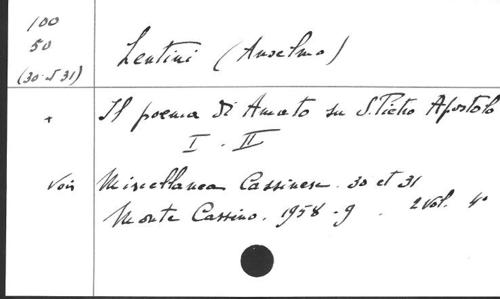 100
50
(30 et 31)
Lentini (Anselmo)
+ Il poema di Amato su S. Pietro Apostolo
I - II
Voir Miscellanea Cassinese. 30 et 31
Monte Cassino. 1958-9. 2 vol. 4°